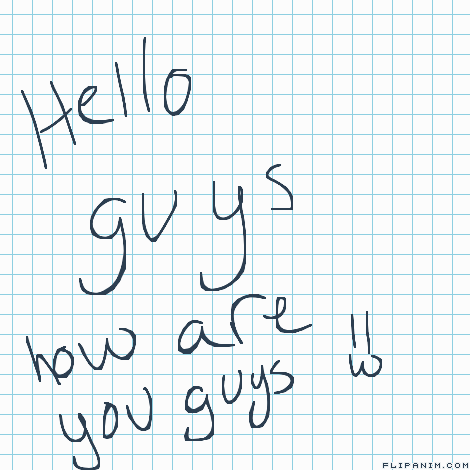 Hello
guys
how are
you guys
FLIPANIM.COM